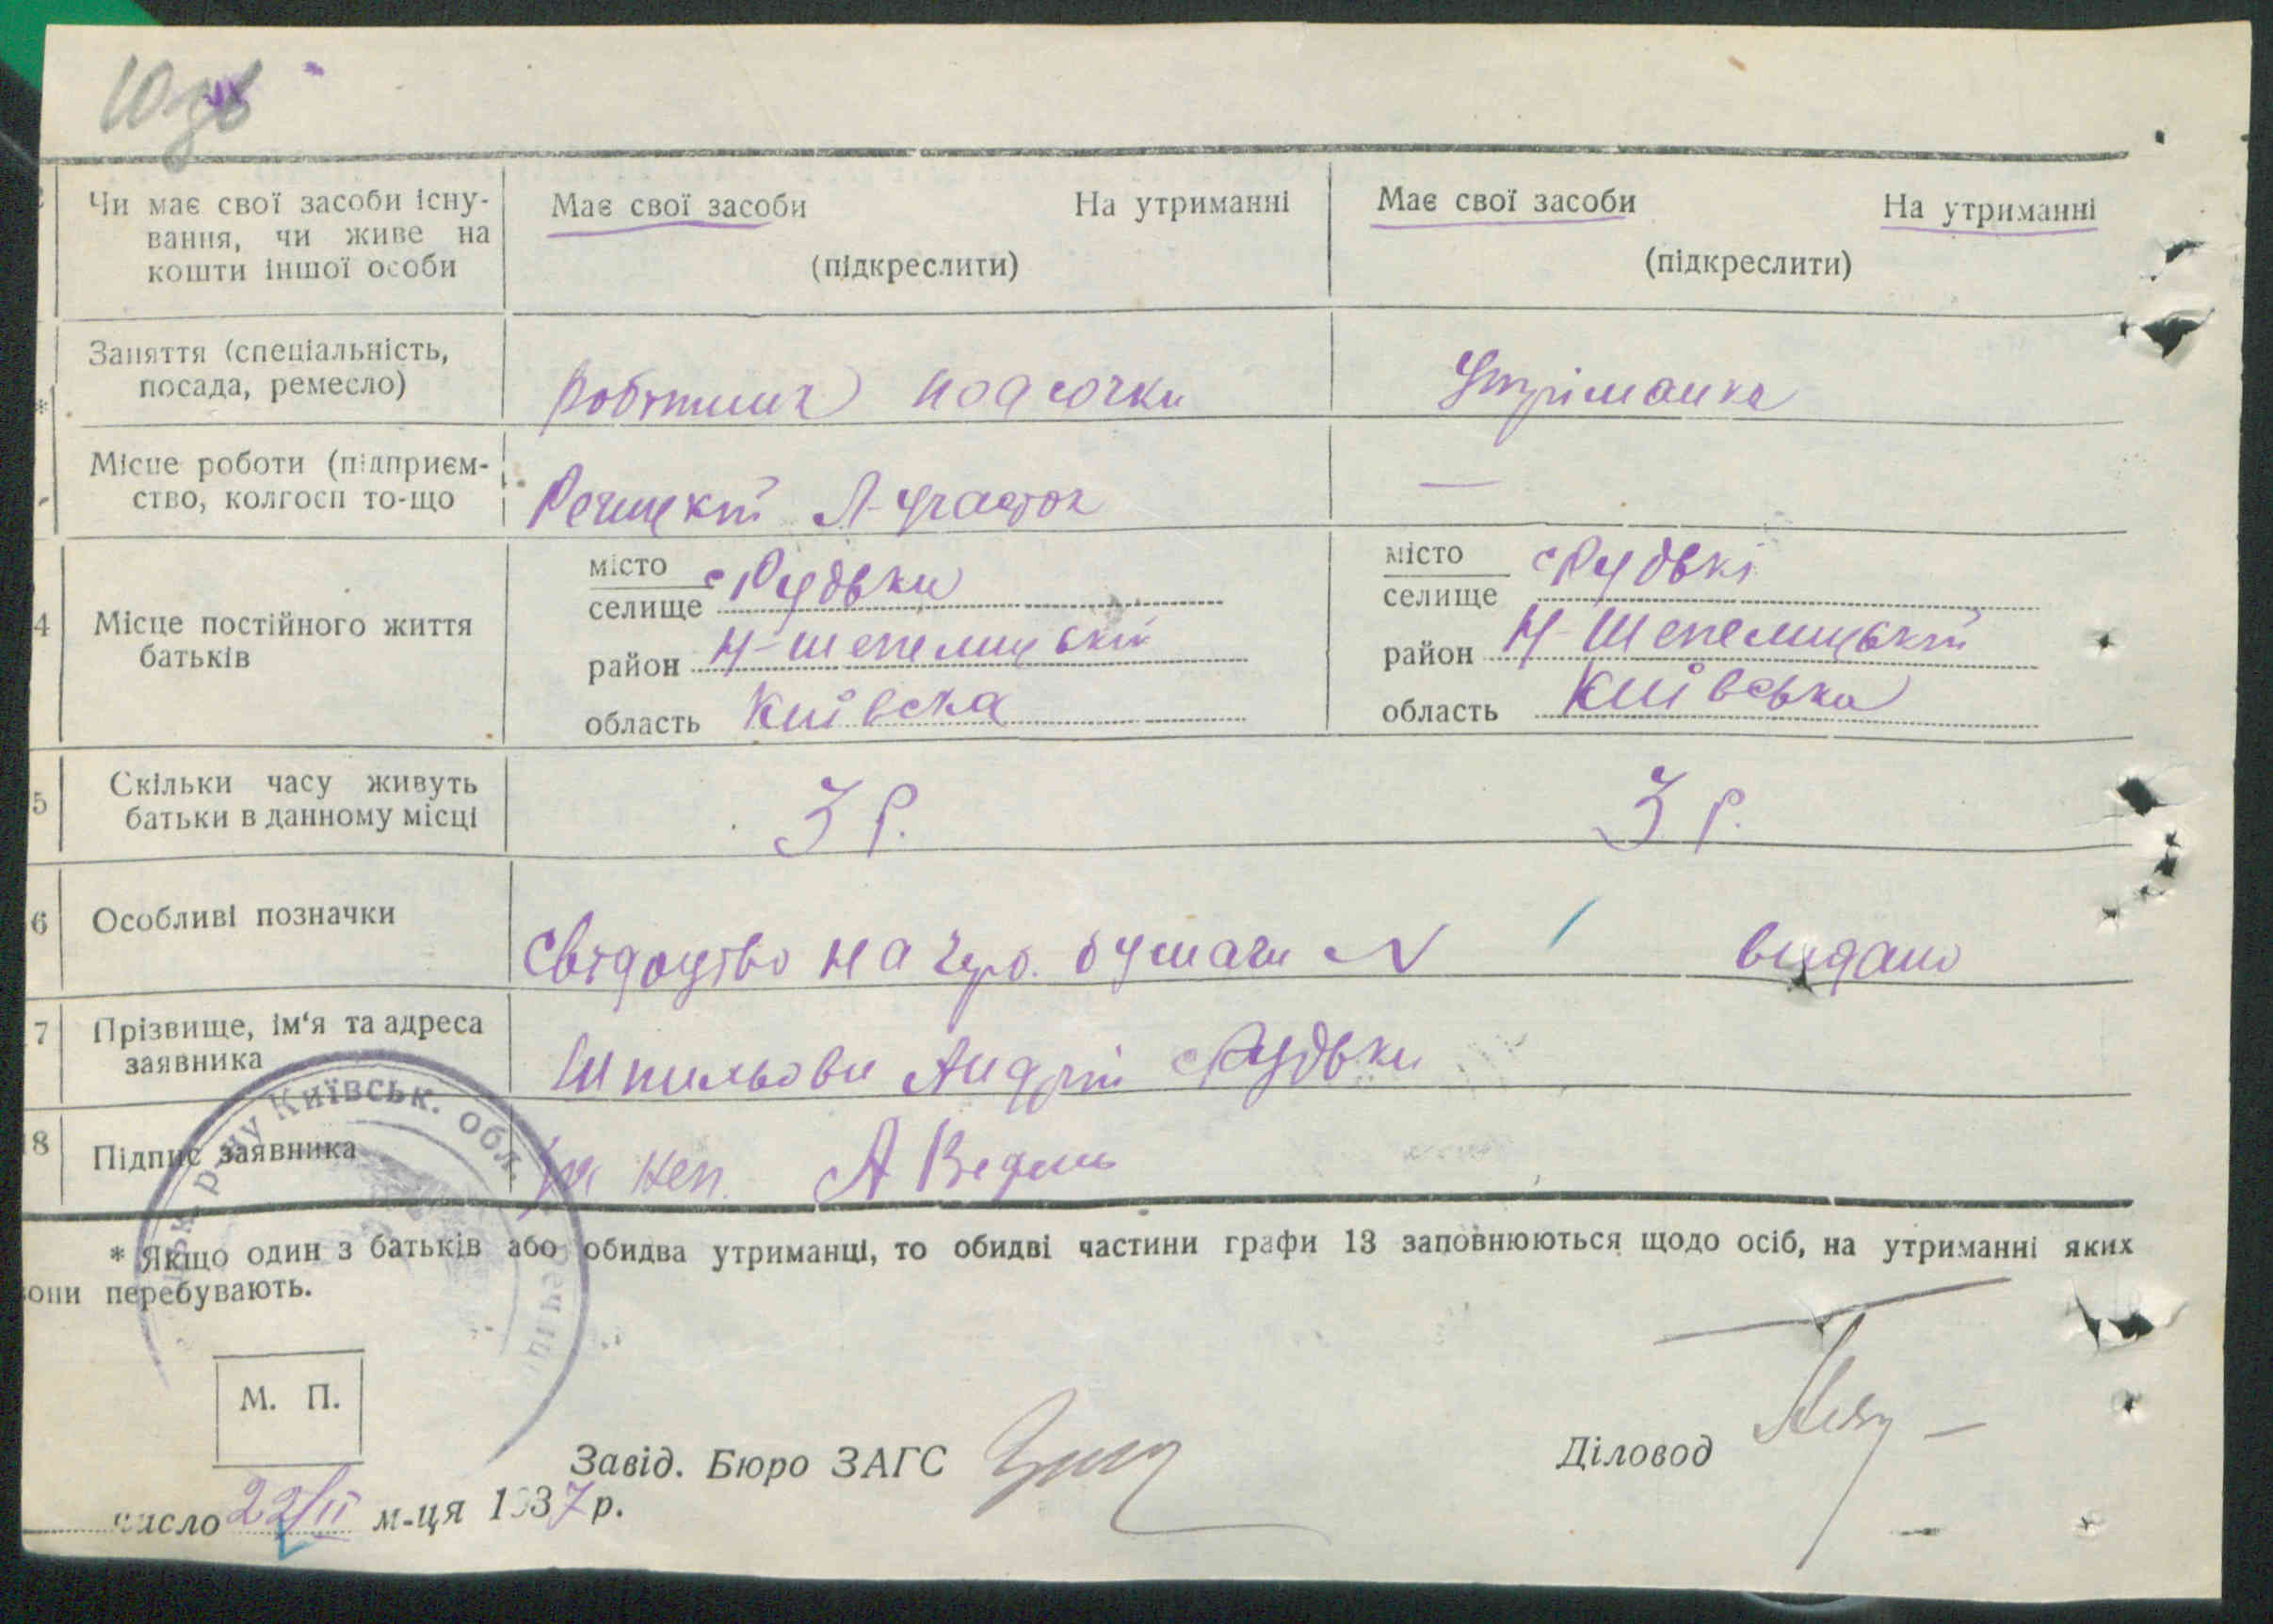 Чи має свої засоби існу-
вання, чи живе на
кошти іншої особи
Має свої засоби На утриманні
(підкреслити)
Має свої засоби На утриманні
(підкреслити)
Заняття (спеціальність,
посада, ремесло)
робітник подсочки
Утріманка
Місце роботи (підприєм-
ство, колгосп то-що
Речицкий Л-участок
—
4 Місце постійного життя
батьків
місто
селище с Рудьки
район Н-Шепелицький
область Київска
місто
селище с Рудькі
район Н-Шепелицький
область Київська
5 Скільки часу живуть
батьки в данному місці
3 р.
3 р.
6 Особливі позначки
Свідоцтво на бумаги N 1 видано
7 Прізвище, ім'я та адреса
заявника
Андрій с Рудьки
8 Підпис заявника
А
* Якщо один з батьків або обидва утриманці, то обидві частини графи 13 заповнюються щодо осіб, на утриманні яких
вони перебувають.
р-ну Київськ. обл.
М. П.
Завід. Бюро ЗАГС
Діловод
число 22/II м-ця 1937 р.